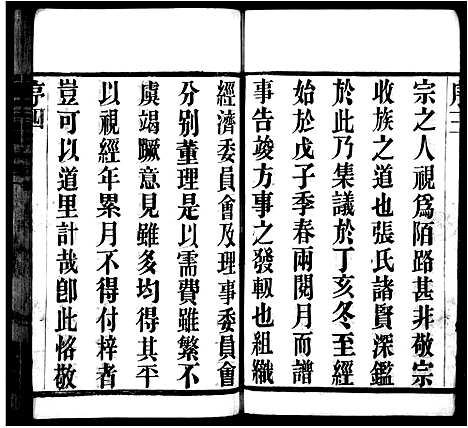 序三
宗之人視爲陌路甚非敬宗
收族之道也張氏諸賢深鑑
於此乃集議於丁亥冬至經
始於戊子季春兩閱月而譜
事告竣方事之發軔也組織
經濟委員會及理事委員會
分别董理是以需費雖繁不
虞竭蹶意見雖多均得其平
以視經年累月不得付梓者
豈可以道里計哉卽此恪敬
序四